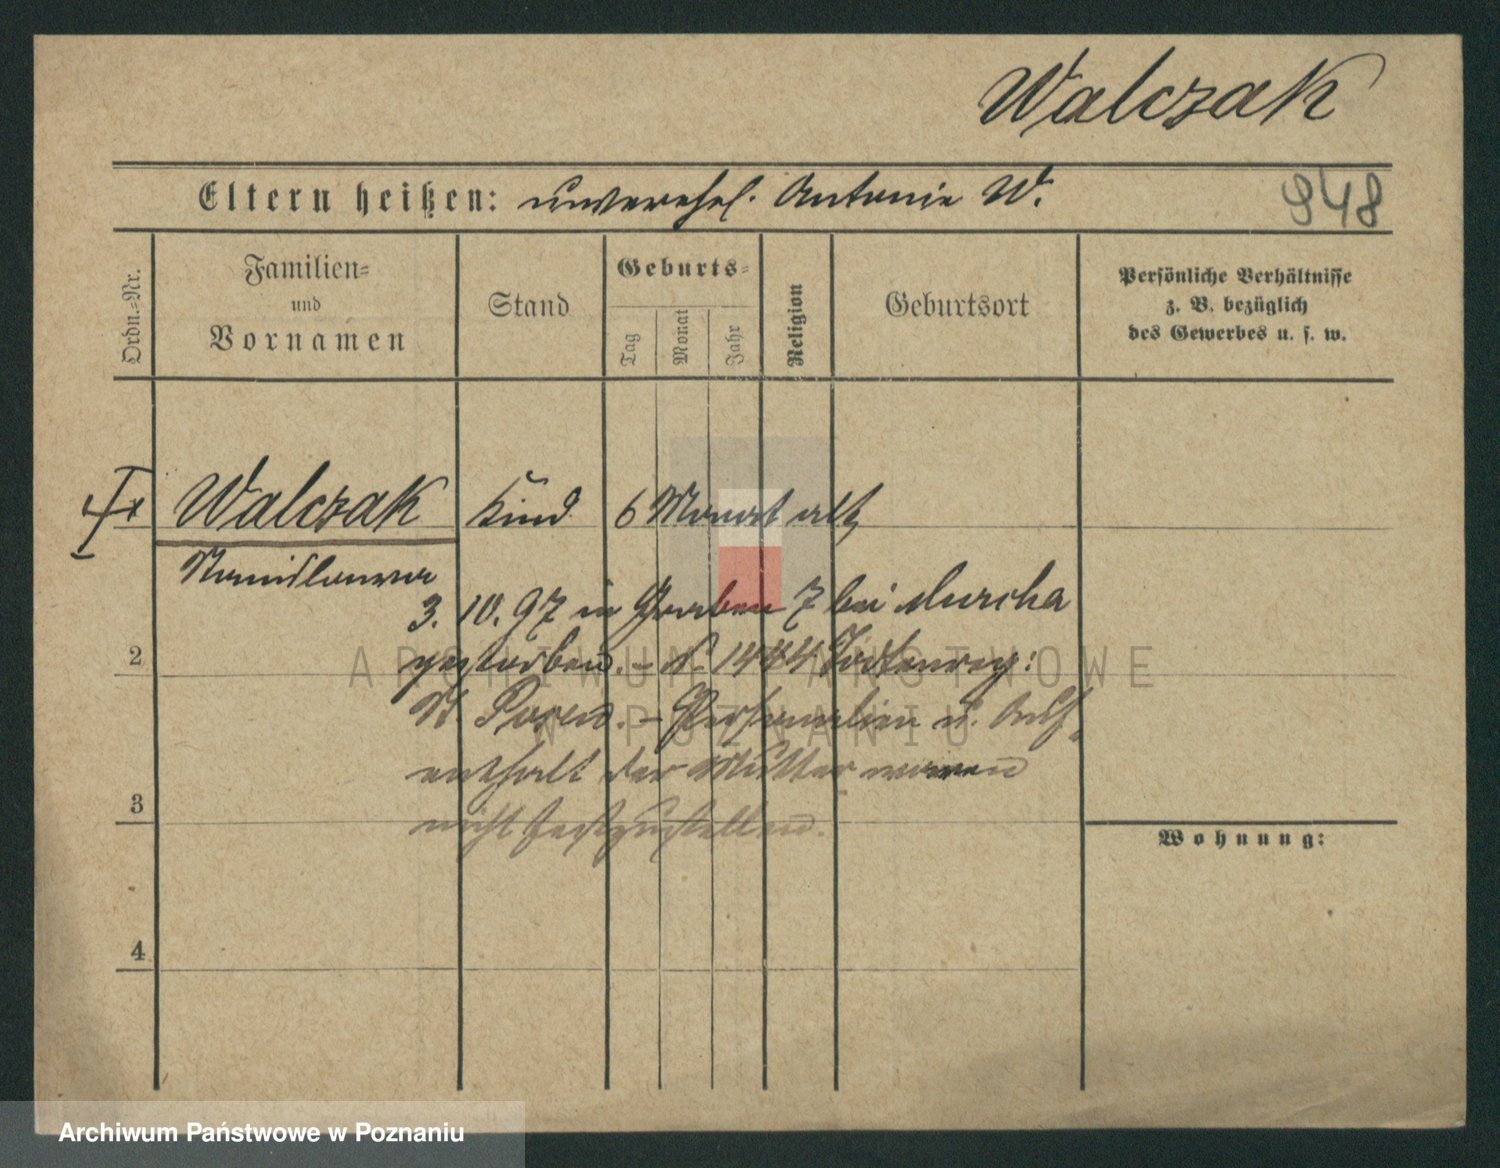 Walczak
Eltern heißen: unverehel. Antonie W.
948
Ordn.=Nr.
Familien=
und
Vornamen
Stand
Geburts=
Tag
Monat
Jahr
Religion
Geburtsort
Persönliche Verhältnisse
z. B. bezüglich
des Gewerbes u. s. w.
Walczak Kind 6 Monat alt,
Stanislawa
3. 10. 97 in Graben 7 bei
gestorben. – N 1444 Todtenreg:
St. Posen. – Personalien u. Auf-
enthalt der Mutter waren
nicht festzustellen.
2
3
4
Wohnung:
ARCHIWUM PAŃSTWOWE
W POZNANIU
Archiwum Państwowe w Poznaniu